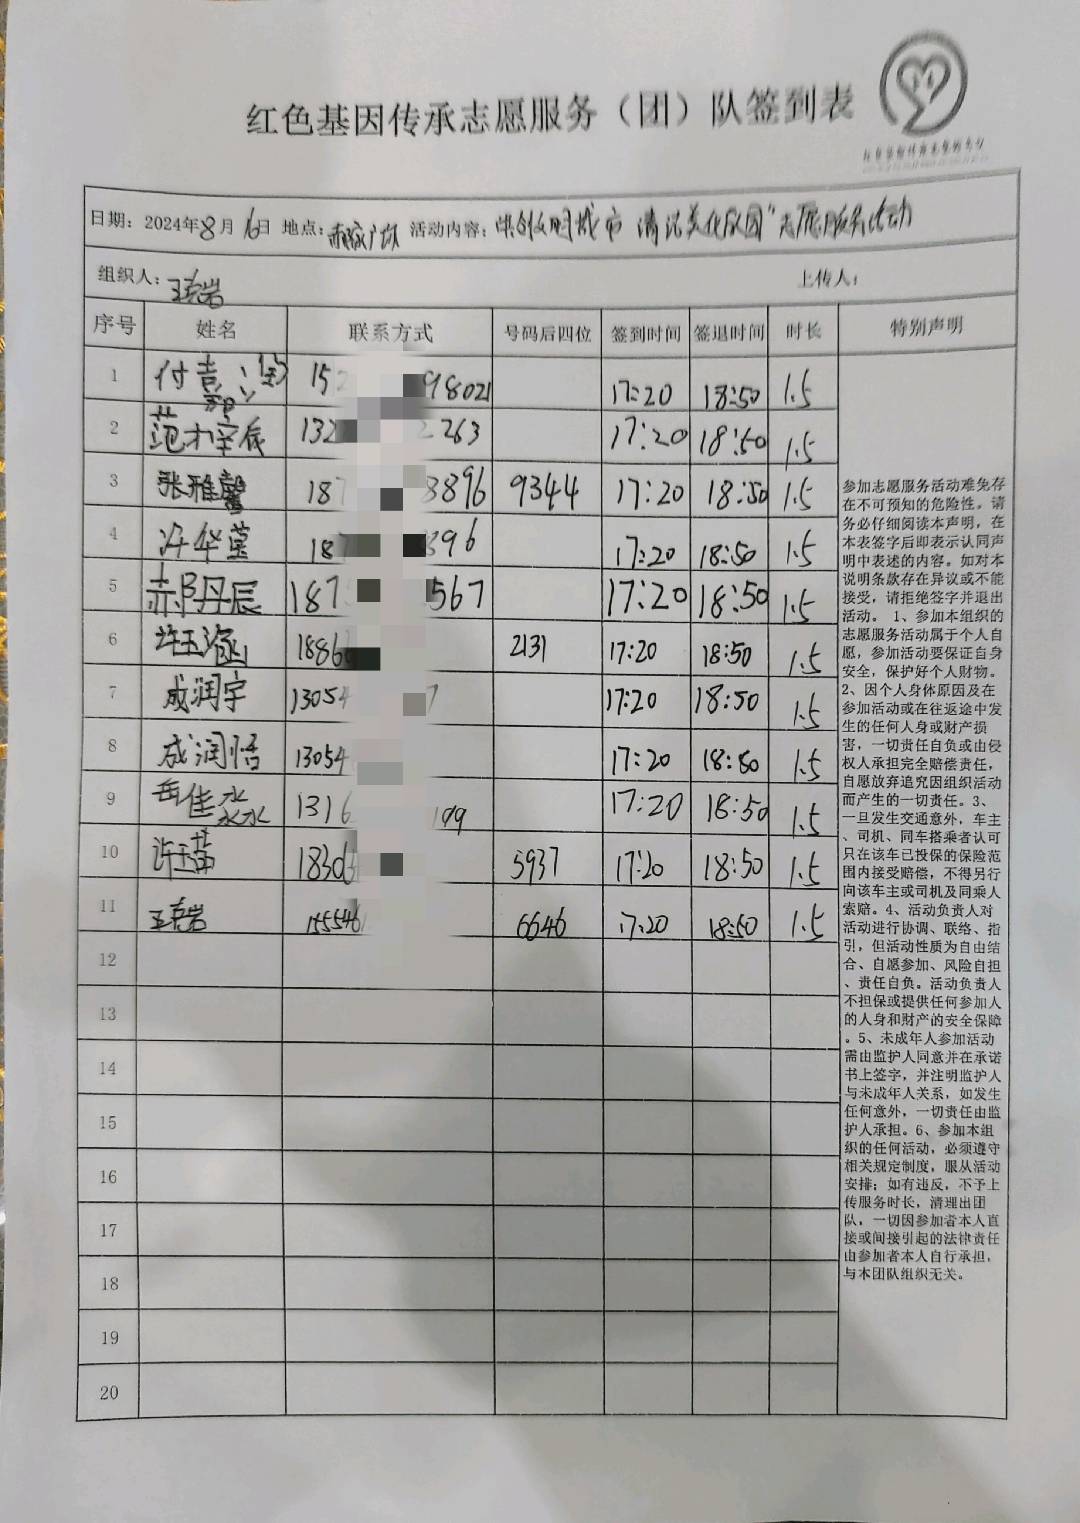 红色基因传承志愿服务（团）队签到表
日期：2024年8月16日 地点：广场 活动内容：共创文明城市 清洁美化家园”志愿服务活动
组织人：王克岩 上传人：
序号 姓名 联系方式 号码后四位 签到时间 签退时间 时长 特别声明
1 付 15 98021 17:20 18:50 1.5
2 范 132 2263 17:20 18:50 1.5
3 张雅馨 187 3896 9344 17:20 18:50 1.5
4 许华莹 187 396 17:20 18:50 1.5
5 郝丹辰 187 567 17:20 18:50 1.5
6 许玉涵 1886 2131 17:20 18:50 1.5
7 成润宇 13054 7 17:20 18:50 1.5
8 成润恬 13054 17:20 18:50 1.5
9 岳佳淼 1316 199 17:20 18:50 1.5
10 许玉苗 1830 5937 17:20 18:50 1.5
11 王克岩 155546 6646 17:20 18:50 1.5
12
13
14
15
16
17
18
19
20
参加志愿服务活动难免存
在不可预知的危险性。请
务必仔细阅读本声明，在
本表签字后即表示认同声
明中表述的内容。如对本
说明条款存在异议或不能
接受，请拒绝签字并退出
活动。 1、参加本组织的
志愿服务活动属于个人自
愿，参加活动要保证自身
安全，保护好个人财物。
2、因个人身体原因及在
参加活动或在往返途中发
生的任何人身或财产损
害，一切责任自负或由侵
权人承担完全赔偿责任，
自愿放弃追究因组织活动
而产生的一切责任。3、
一旦发生交通意外，车主
、司机、同车搭乘者认可
只在该车已投保的保险范
围内接受赔偿，不得另行
向该车主或司机及同乘人
索赔。4、活动负责人对
活动进行协调、联络、指
引，但活动性质为自由结
合、自愿参加、风险自担
、责任自负。活动负责人
不担保或提供任何参加人
的人身和财产的安全保障
。5、未成年人参加活动
需由监护人同意并在承诺
书上签字，并注明监护人
与未成年人关系，如发生
任何意外，一切责任由监
护人承担。6、参加本组
织的任何活动，必须遵守
相关规定制度，服从活动
安排；如有违反，不予上
传服务时长，清理出团
队，一切因参加者本人直
接或间接引起的法律责任
由参加者本人自行承担，
与本团队组织无关。